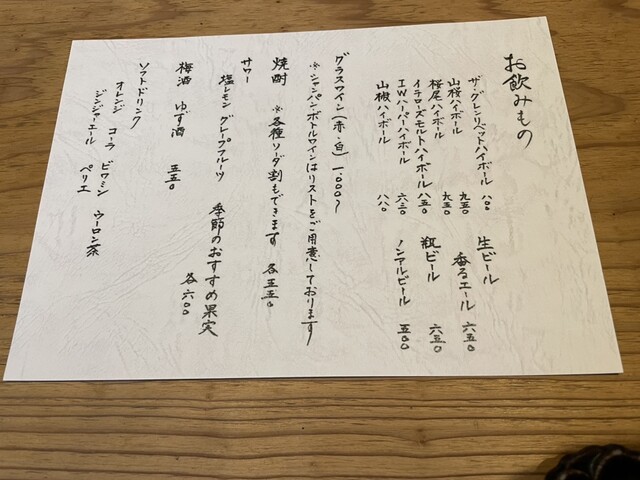 お飲みもの
生ビール
香るエール 六五〇
瓶ビール 六三〇
ノンアルビール 五〇〇
ザ・グレンリベットハイボール
山桜ハイボール 九五〇
桜尾ハイボール 九五〇
イチローズモルトハイボール 八五〇
I.W.ハーパーハイボール 六三〇
山椒ハイボール 八八〇
グラスワイン(赤・白) 一,〇〇〇〜
※シャンパン・ボトルワインはリストをご用意しております
焼酎 ※各種ソーダ割もできます 各五五〇
サワー
塩レモン グレープフルーツ 季節のおすすめ果実 各六〇〇
梅酒 ゆず酒 五五〇
ソフトドリンク
オレンジ コーラ ビタミン ウーロン茶
ジンジャーエール ペリエ